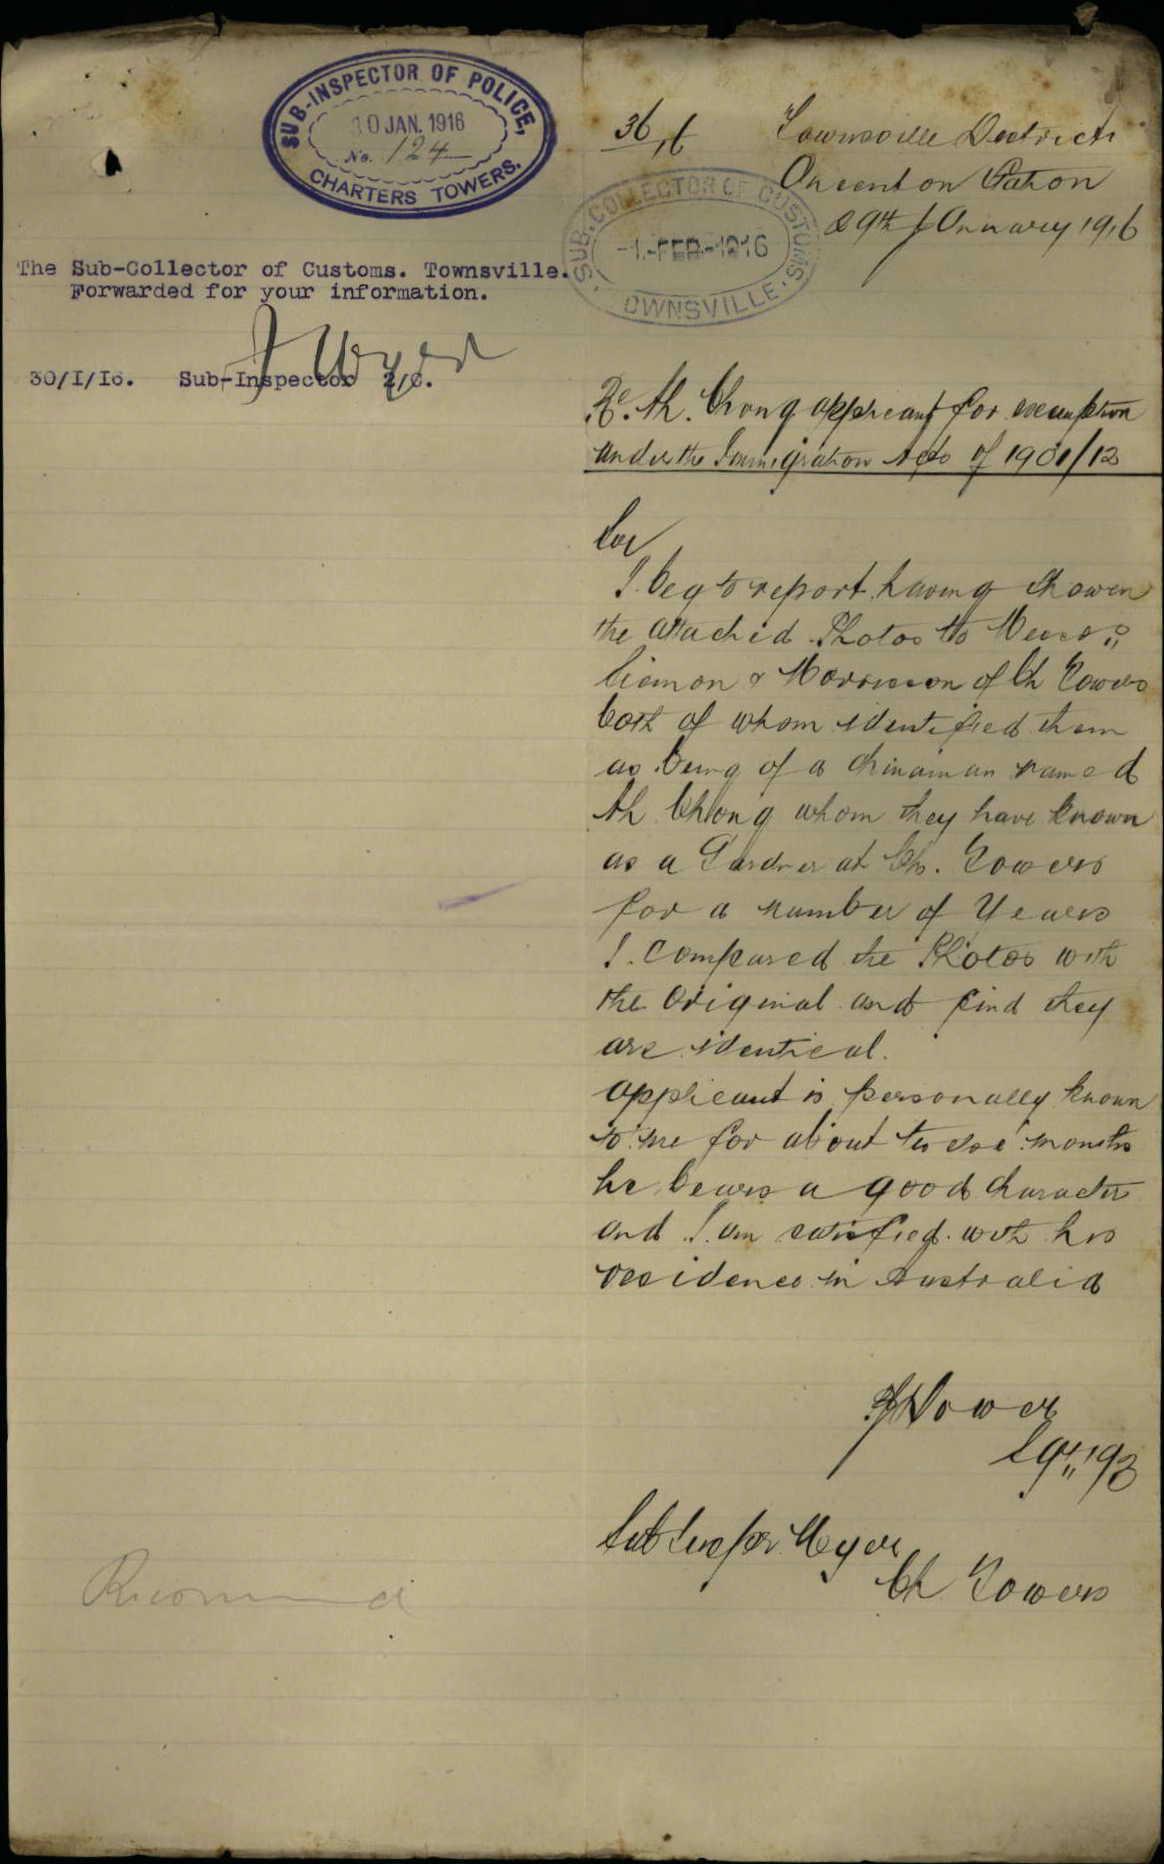 SUB-INSPECTOR OF POLICE,
30 JAN. 1916
No. 124
CHARTERS TOWERS.
The Sub-Collector of Customs. Townsville.
Forwarded for your information.
30/I/16. Sub-Inspector 2/C.
36/16
Townsville District
Station
29th January 1916
SUB-COLLECTOR OF CUSTOMS
-1.-FEB-1916
TOWNSVILLE
Re. Ah. Chong applicant for exemption
under the Immigration Acts of 1901/12
Sir
I beg to report having shown
the attached Photos to Messrs
& Morrison of Ch Towers
both of whom identified them
as being of a Chinaman named
Ah Chong whom they have known
as a Gardner at Ch. Towers
for a number of Years
I. Compared the Photos with
the Original and find they
are identical.
applicant is personally known
to me for about twelve months
he bears a good character
and I am satisfied with his
residence in Australia
Power
Sgt
Sub Inspr Meyer
Ch Towers